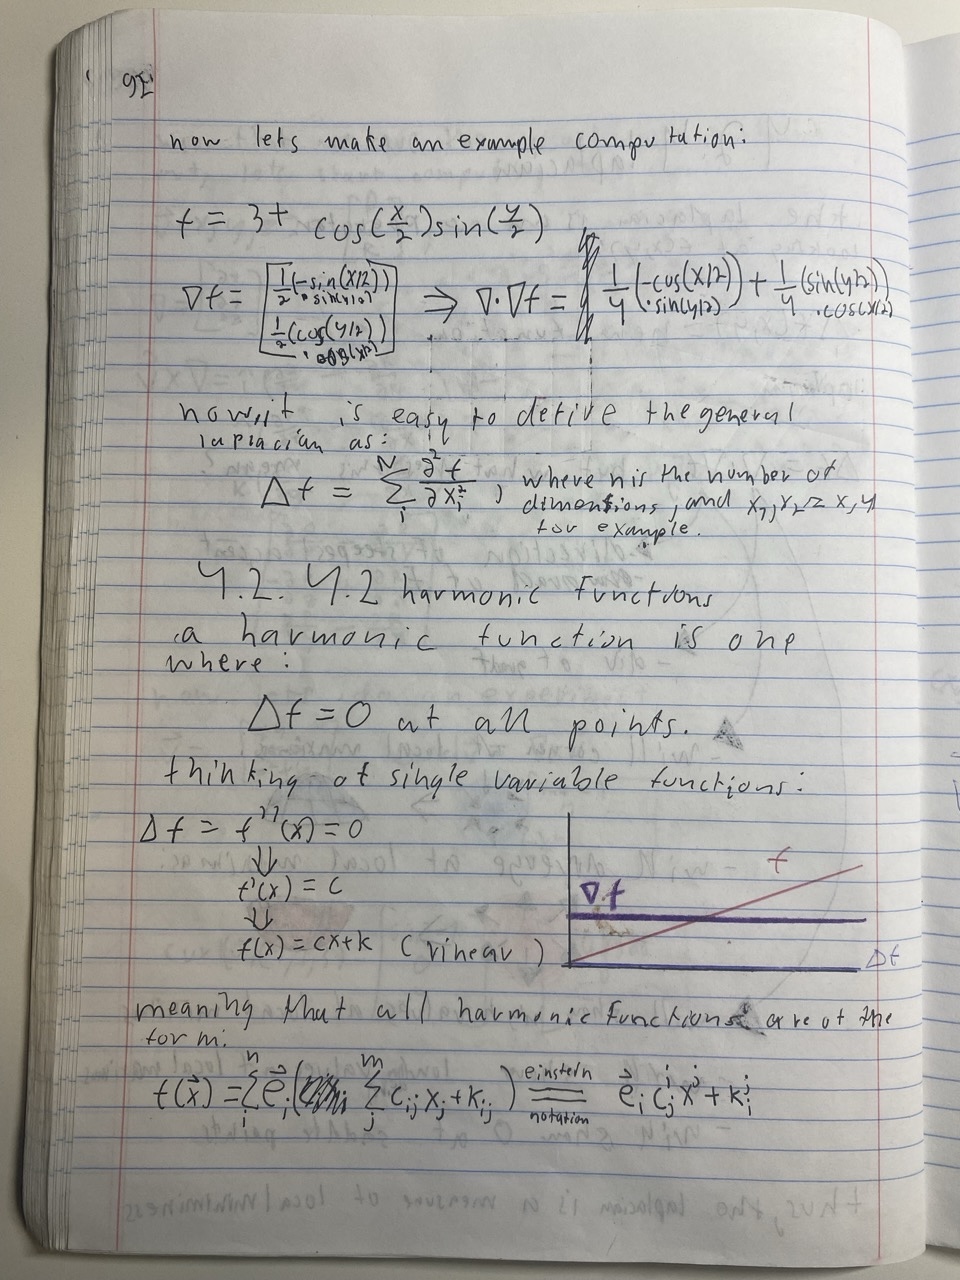 36
now lets make an example computation:
f = 3 + cos(x/2)sin(y/2)
∇f = [1/2(-sin(x/2)) · sin(y/2) 1/2(cos(y/2)) · cos(x/2)] ⇒ ∇·∇f = 1/4(-cos(x/2) · sin(y/2)) + 1/4(sin(y/2)) · cos(x/2)
now, it is easy to derive the general
laplacian as:
Δf = Σ_i^N ∂²f/∂x_i², where n is the number of
dimentions, and x₁,x₂ = x,y
for example.
4.2.4.2 harmonic functions
a harmonic function is one
where:
Δf = 0 at all points.
thinking of single variable functions:
Δf = f''(x) = 0
⇓
f'(x) = c
⇓
f(x) = cx+k (linear)
f
∇f
Δf
meaning that all harmonic functions are of the
form:
f(x⃗) = Σ_i^n e⃗_i( Σ_j^m c_ij x_j + k_ij ) ==(einstein notation)== e⃗_i c_j^i x^j + k_i^j